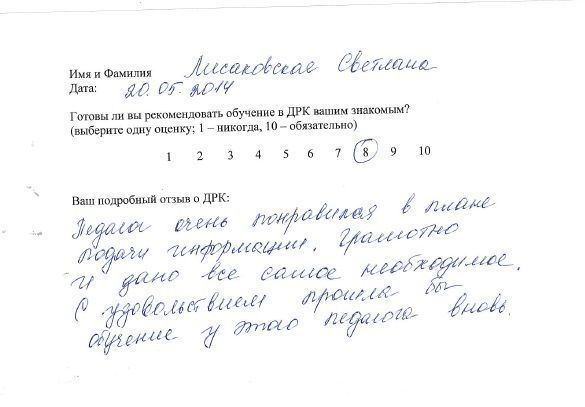 Имя и Фамилия Лисаковская Светлана
Дата: 20.05.2014
Готовы ли вы рекомендовать обучение в ДРК вашим знакомым?
(выберите одну оценку; 1 – никогда, 10 – обязательно)
1 2 3 4 5 6 7 8 9 10
Ваш подробный отзыв о ДРК:
Педагог очень понравился в плане
подачи информации. Грамотно
и дано все самое необходимое.
С удовольствием прошла бы
обучение у этого педагога вновь.